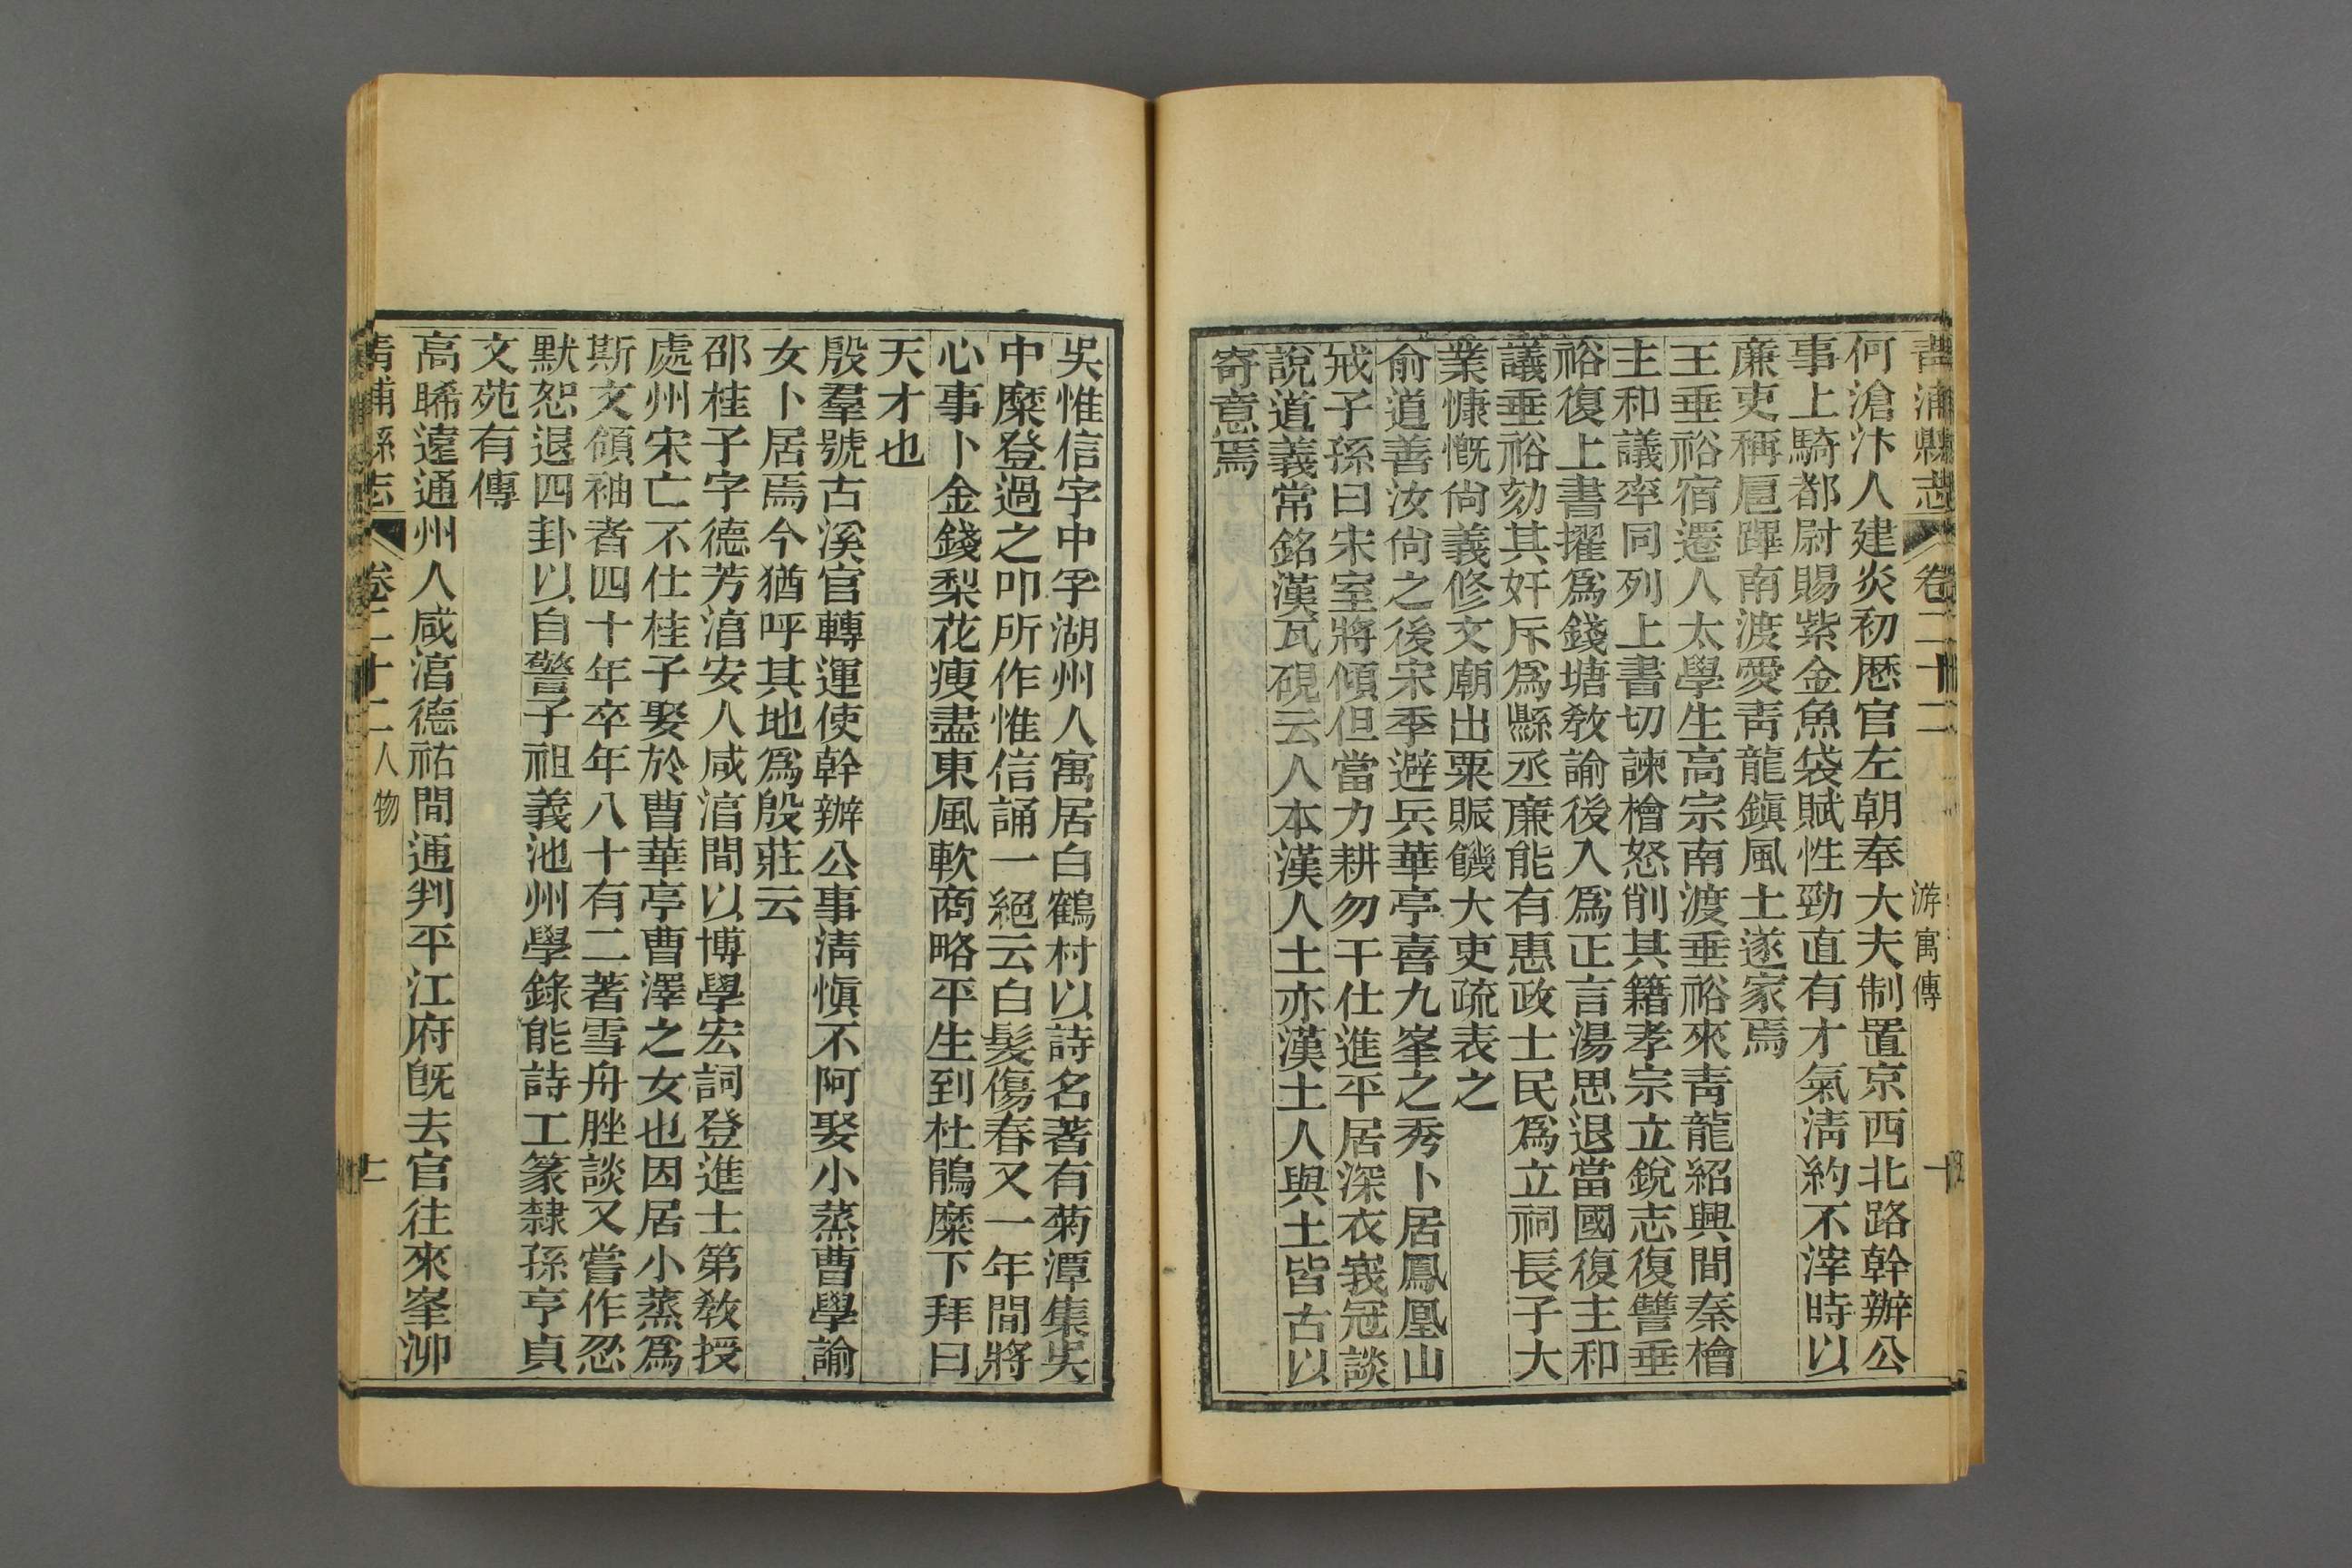 青浦縣志 卷二十二 游寓傳 一
何滄汴人建炎初歷官左朝奉大夫制置京西北路幹辦公
事上騎都尉賜紫金魚袋賦性勁直有才氣淸約不滓時以
廉吏稱扈蹕南渡愛靑龍鎭風土遂家焉
王垂裕宿遷人太學生高宗南渡垂裕來靑龍紹興間秦檜
主和議率同列上書切諫檜怒削其籍孝宗立銳志復讐垂
裕復上書擢爲錢塘敎諭後入爲正言湯思退當國復主和
議垂裕劾其奸斥爲縣丞廉能有惠政士民爲立祠長子大
業慷慨尙義修文廟出粟賑饑大吏疏表之
俞道善汝尙之後宋季避兵華亭喜九峯之秀卜居鳳凰山
戒子孫曰宋室將傾但當力耕勿干仕進平居深衣峩冠談
說道義常銘漢瓦硯云人本漢人土亦漢土人與土皆古以
寄意焉
吳惟信字中孚湖州人寓居白鶴村以詩名著有菊潭集吳
中糜登過之叩所作惟信誦一絕云白髮傷春又一年間將
心事卜金錢梨花瘦盡東風軟商略平生到杜鵑糜下拜曰
天才也
殷羣號古溪官轉運使幹辦公事淸愼不阿娶小蒸曹學諭
女卜居焉今猶呼其地爲殷莊云
邵桂子字德芳湻安人咸湻間以博學宏詞登進士第敎授
處州宋亡不仕桂子娶於曹華亭曹澤之女也因居小蒸爲
斯文領袖者四十年卒年八十有二著雪舟脞談又嘗作忍
默恕退四卦以自警子祖義池州學錄能詩工篆隸孫亨貞
文苑有傳
高睎遠通州人咸湻德祐間通判平江府旣去官往來峯泖
青浦縣志 卷二十二 人物 十一